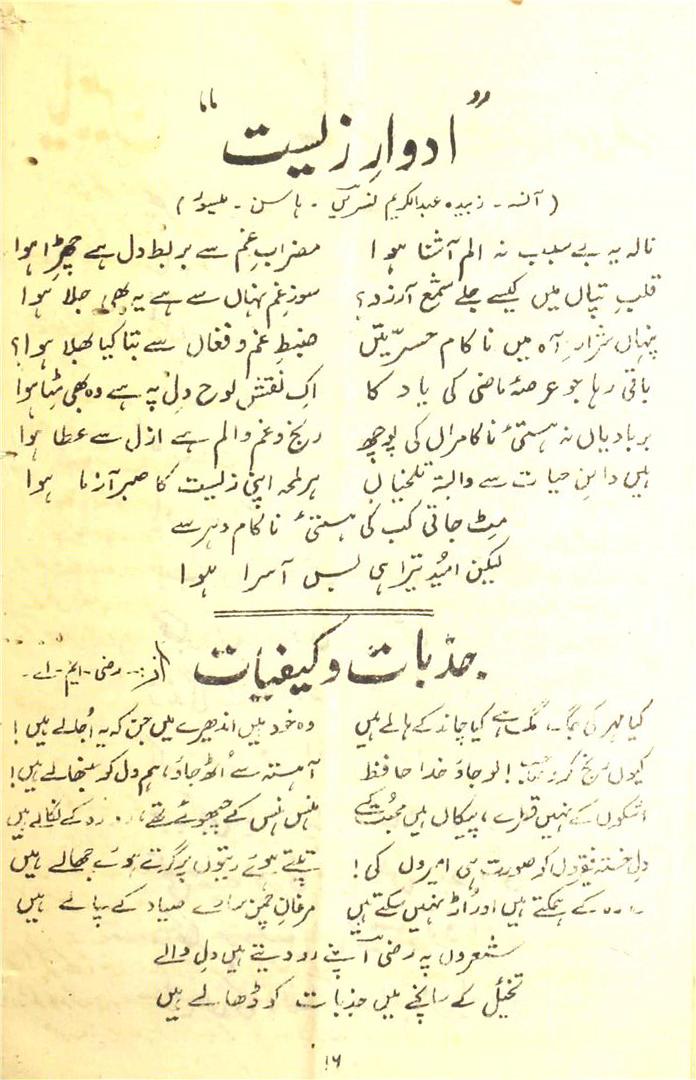 "ادوارِ زیست"
(آنسہ۔ زبیدہ عبدالکریم نسرینؔ۔ ہاسن۔ میسور)
نالہ یہ بے سبب نہ الم آشنا ہوا مضرابِ غم سے بربطِ دل ہے چھڑا ہوا
قلبِ تپاں میں کیسے جلے شمعِ آرزو؟ سوزِ غمِ نہاں سے ہے یہ بھی جلا ہوا
پنہاں شرارِ آہ میں ناکام حسرتیں ضبطِ غم و فغاں سے بتا کیا بھلا ہوا؟
باقی رہا جو عرصۂ ماضی کی یاد کا اک نقش لوحِ دل پہ ہے وہ بھی مٹا ہوا
بربادیاں نہ ہستیٔ ناکامراں کی پوچھ رنج و غم و الم ہے ازل سے عطا ہوا
ہیں دامنِ حیات سے وابستہ تلخیاں ہر لمحہ اپنی زیست کا صبر آزما ہوا
مِٹ جاتی کب کی ہستیٔ ناکام دہر سے
لیکن امُید تیرا ہی بس آسرا ہوا
جذبات و کیفیات
از:۔ رضی۔ ایم۔ اے۔
کیا مہر کی کیا چاند کے ہالے ہیں وہ خود ہیں اندھیرے میں جن کے یہ اُجالے ہیں!
کیوں رنج کرو! لو جاؤ خدا حافظ آہستہ سے اُٹھ جاؤ، ہم دل کو سنبھالے ہیں!
اشکوں کے نہیں قطرے، پیکاں ہیں محبت کے ہنس ہنس کے چبھوئے تھے، کے نکالے ہیں
دل خستہ فقیروں کو صورت ہی امیروں کی! تپتے ہوئے ریتوں پر گرتے ہوئے جھالے ہیں
کے ہمکتے ہیں اور اُڑ نہیں سکتے ہیں مرغانِ چمن صیاد کے پالے ہیں
شعروں پہ رضیؔ اپنے رو دیتے ہیں دل والے
تخئیل کے سانچے میں جذبات کو ڈھالے ہیں
۱۶